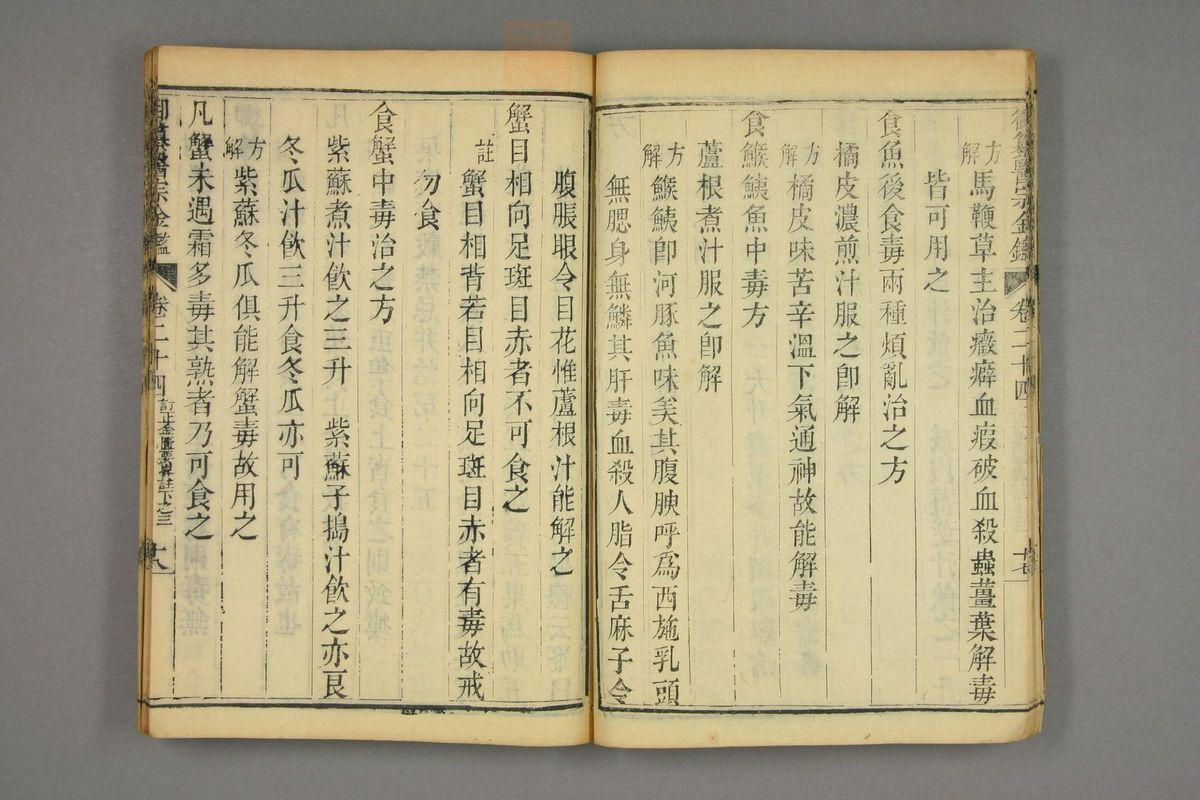 御纂醫宗金鑑 卷二十四
方解 馬鞭草主治癥癖血瘕破血殺蟲薑葉解毒
皆可用之
食魚後食毒兩種煩亂治之方
橘皮濃煎汁服之卽解
方解 橘皮味苦辛溫下氣通神故能解毒
食鯸鮧魚中毒方
蘆根煮汁服之卽解
方解 鯸鮧卽河豚魚味美其腹腴呼爲西施乳頭
無腮身無鱗其肝毒血殺人脂令舌麻子令
腹脹眼令目花惟蘆根汁能解之
蟹目相向足斑目赤者不可食之
註 蟹目相背若目相向足斑目赤者有毒故戒
勿食
食蟹中毒治之方
紫蘇煮汁飲之三升 紫蘇子搗汁飲之亦良
冬瓜汁飲三升食冬瓜亦可
方解 紫蘇冬瓜俱能解蟹毒故用之
凡蟹未遇霜多毒其熟者乃可食之
御纂醫宗金鑑 卷二十四 訂正金匱要畧註下之三 十八